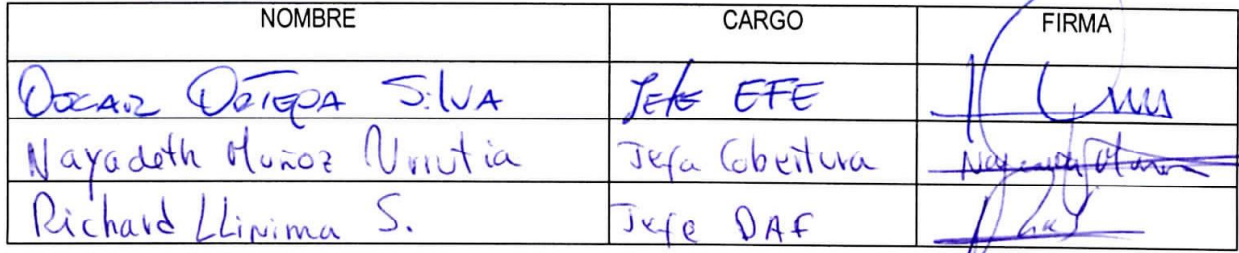 NOMBRE CARGO FIRMA
OSCAR ORTEGA SILVA Jefe EFE
Nayadeth Muñoz Urrutia Jefa Cobertura Nayadeth Muñoz
Richard Llinima S. Jefe DAF